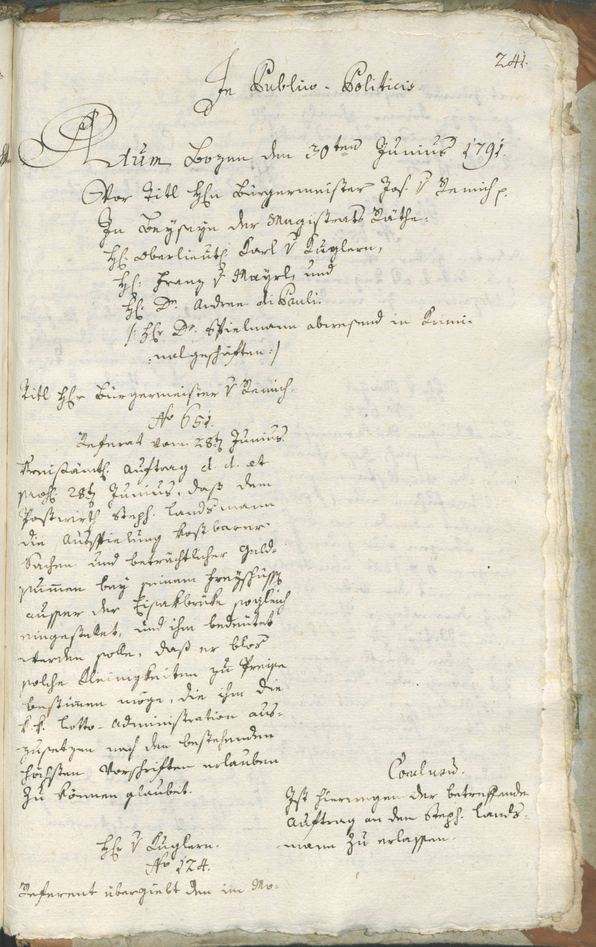 241.
In Publico-Politicis
Actum Bozen den 30ten Junius 1791.
Vor Titl Hrn Bürgermeister Jos. v Remich p.
In Beyseyn der Magistrats Räthe.
H: Oberlieut: Karl v Kuglern,
H: Franz v Mayrl, und
H: Dr. Andree di Pauli.
/: Hr Dr. Spielmann abwesend in Krimi-
nalgeschäften :/
Titl Hr Bürgermeister v Remich.
No 651.
Referat vom 28ten Junius.
Kreisämtl. Auftrag d. d. et
praes: 28ten Junius, daß dem
Postwirth Steph. Landsmann
die Ausspielung kostbarer
Sachen und beträchtlicher Geld-
summen bey seinem Freyschüssen
ausser der Eisakbrüke sogleich
eingestellet, und ihm bedeutet
werden solle, daß er blos
solche Kleinigkeiten zu Preise
bestimmen möge, die ihm die
k. k. Lotto-Administration aus-
zusetzen nach den bestehenden
höchsten Vorschriften erlauben
zu können glaubet.
Conclusum.
Ist hierwegen der betreffende
Auftrag an den Steph. Lands-
mann zu erlassen.
Hr v Kuglern.
No 124.
Referent übergiebt den im Mo-